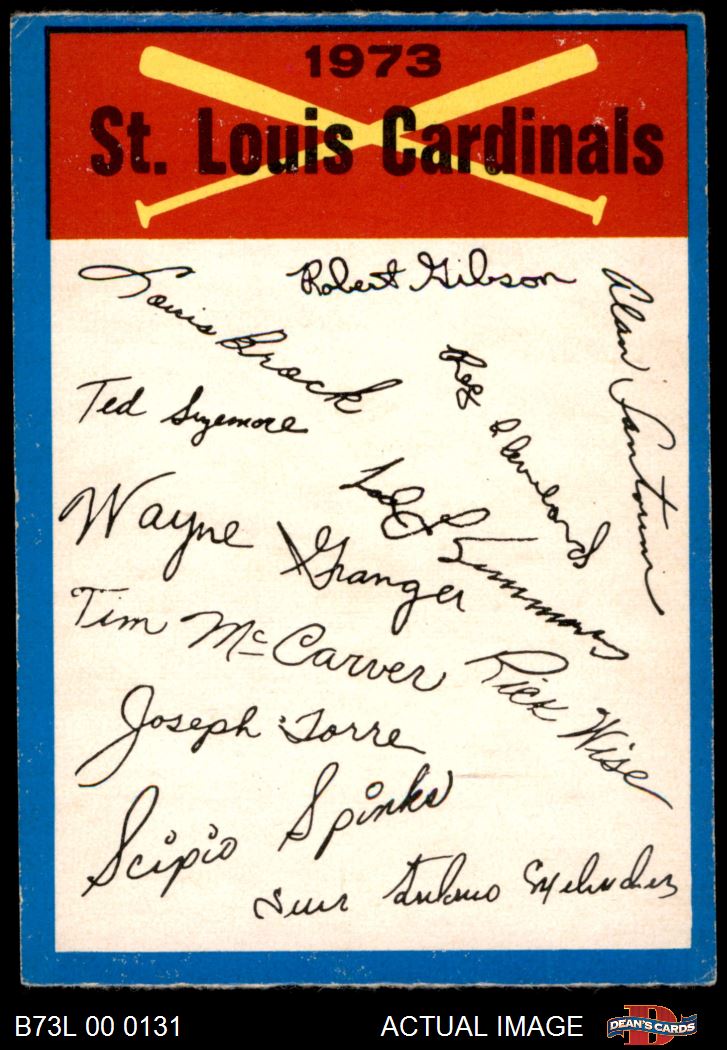 1973
St. Louis Cardinals
Robert Gibson
Louis Brock
Alan Santorini
Reg Cleveland
Ted Sizemore
Ted Simmons
Wayne Granger
Tim McCarver
Rick Wise
Joseph Torre
Scipio Spinks
Luis Antonio Melendez
B73L 00 0131
ACTUAL IMAGE
D
DEAN'S CARDS